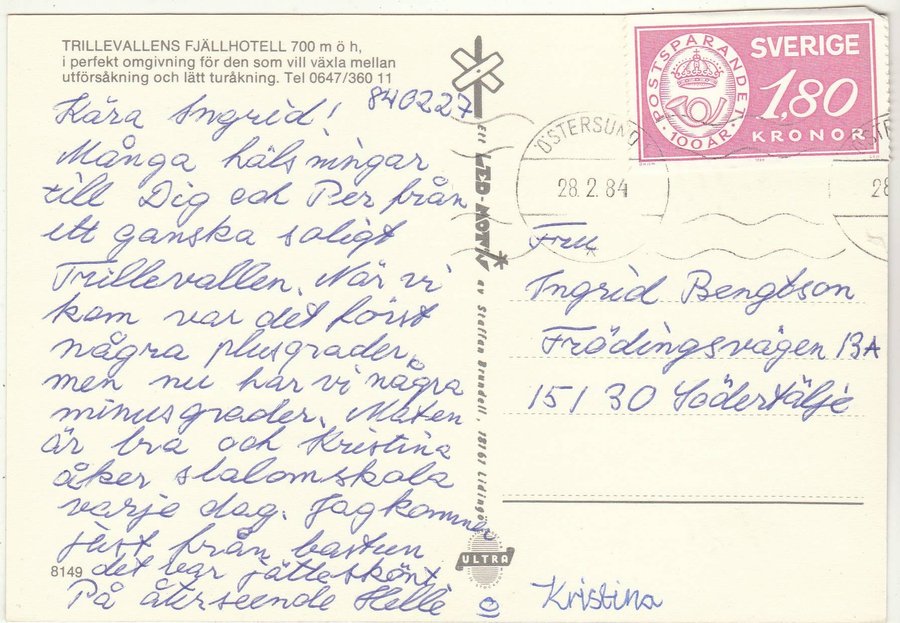 TRILLEVALLENS FJÄLLHOTELL 700 m ö h,
i perfekt omgivning för den som vill växla mellan
utförsåkning och lätt turåkning. Tel 0647/360 11
840227
Kära Ingrid!
Många hälsningar
till Dig och Per från
ett ganska soligt
Trillevallen. När vi
kom var det först
några plusgrader,
men nu har vi några
minusgrader. Maten
är bra och Kristina
åker slalomskola
varje dag. Jag kommer
just från bastun
det var jätteskönt.
På återseende Helle
8149
o Kristina
Ett LED-MOTIV av Staffan Brundell, 18161 Lidingö
ULTRA
POSTSPARANDET 100 ÅR
SVERIGE
1,80
KRONOR
ÖSTERSUND
28.2.84
28
Fru
Ingrid Bengtson
Frödingsvägen 13A
151 30 Södertälje